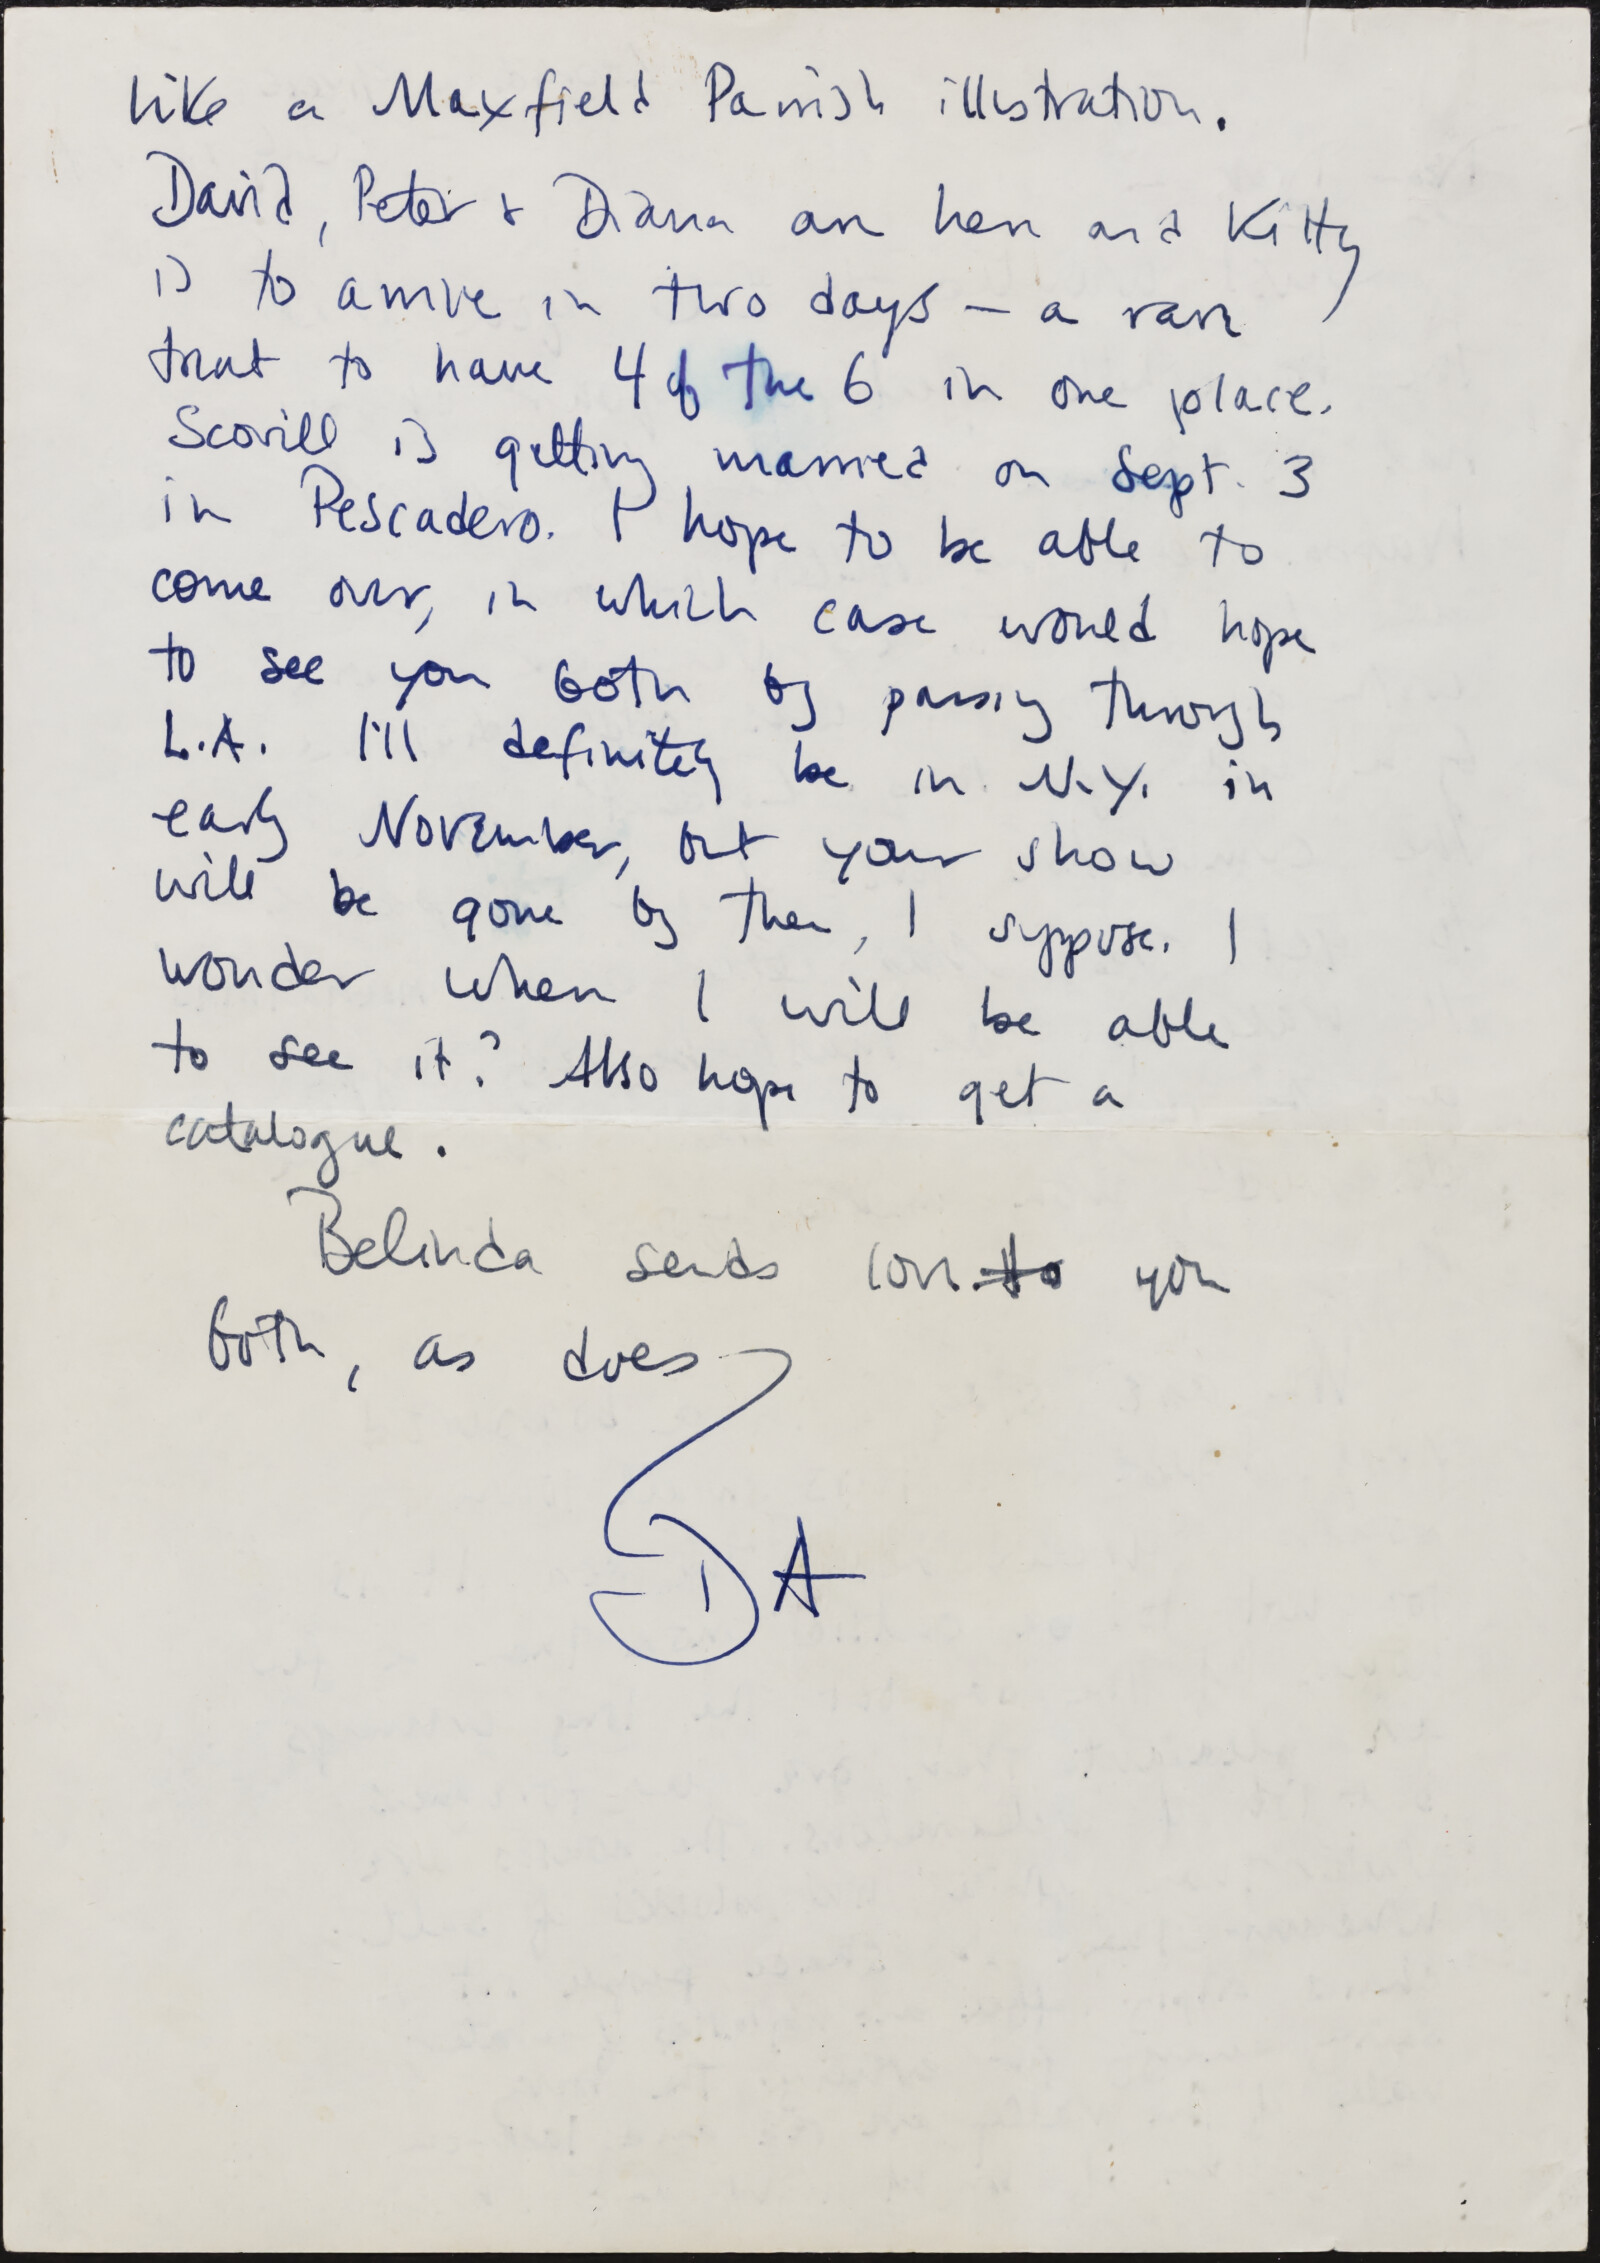 like a Maxfield Parrish illustration.
David, Peter & Diana are here and Kitty
is to arrive in two days - a rare
treat to have 4 of the 6 in one place.
Scovill is getting married on Sept. 3
in Pescadero. I hope to be able to
come over, in which case would hope
to see you both by passing through
L.A. I'll definitely be in N.Y. in
early November, but your show
will be gone by then, I suppose. I
wonder when I will be able
to see it? Also hope to get a
catalogue.
Belinda sends love to you
both, as does
DA